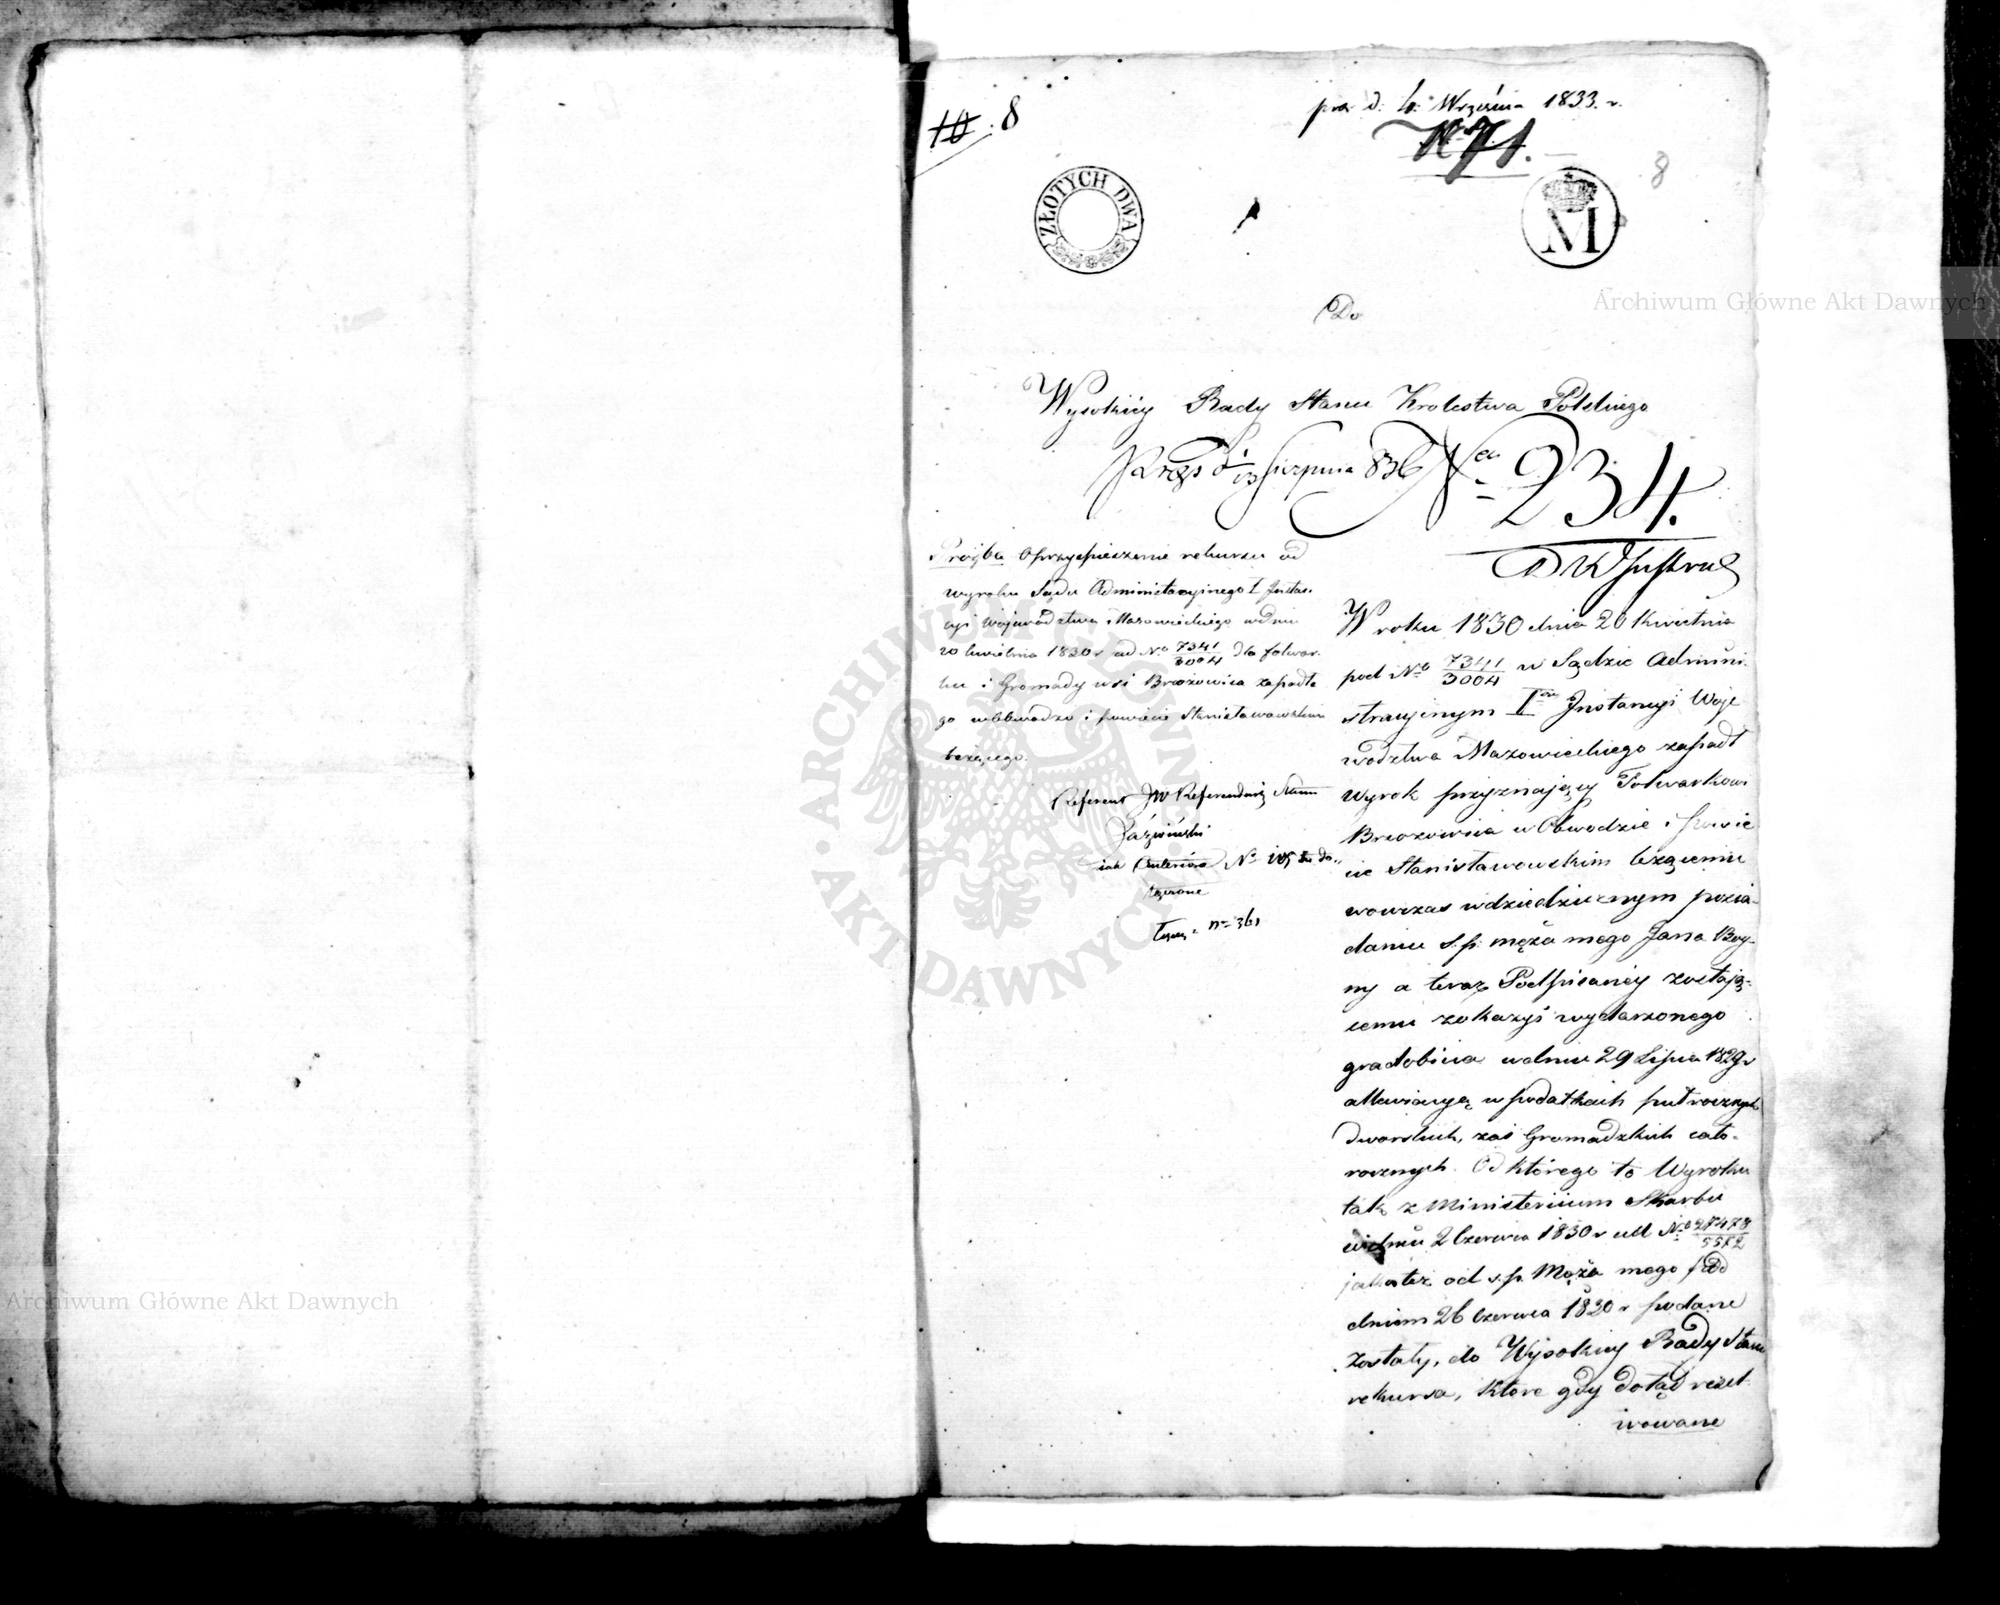 10. 8
prez d: 6. Września 1833. r.
N 71.
8
ZŁOTYCH DWA
M
Do
Wysokiéy Rady Stanu Krolestwa Polskiego
Sierpnia 836 N 234.
Prośba o przyspieszenie rekursu od
wyroku Sądu Administracyinego I Instan.
cyi Wojewodztwa Mazowieckiego w dniu
20 kwietnia 1830 r ad No 7341/3004 dla folwar.
ku i Gromady wsi Brzozowica zapadłe
go w obwodzie i powiecie Stanisławowskim
leżącego.
Referent JW Referendarz Stanu
N
łączone
No 361
W roku 1830 dnia 20 Kwietnia
pod No 7341/3004 w Sądzie Admini.
stracyinym I Instancyi Woje
wodztwa Mazowieckiego zapadł
Wyrok przyznający Folwarkowi
Brzozowica w Obwodzie i Powie
cie Stanisławowskim leżącemu
wowczas w dziedzicznym posia-
daniu s. p. męża mego Jana
a teraz Podpisanéy zostają-
cemu z okazyi wydarzonego
gradobicia w dniu 29 Lipca 1829 r
allewiacyą w podatkach pułrocznych
Dworskich, zaś Gromadzkich cało-
rocznych. Od którego to Wyroku
tak z Ministerium Skarbu
w dniu 2 Czerwca 1830 r No 27478
jakoteż od s. p. Męża mego pod
dniem 26 Czerwca 1830 r podane
zostały, do Wysokiey Rady Stanu
rekursa, które gdy dotąd rezol
wowane
Archiwum Główne Akt Dawnych
Archiwum Główne Akt Dawnych
ARCHIWUM GŁÓWNE AKT DAWNYCH